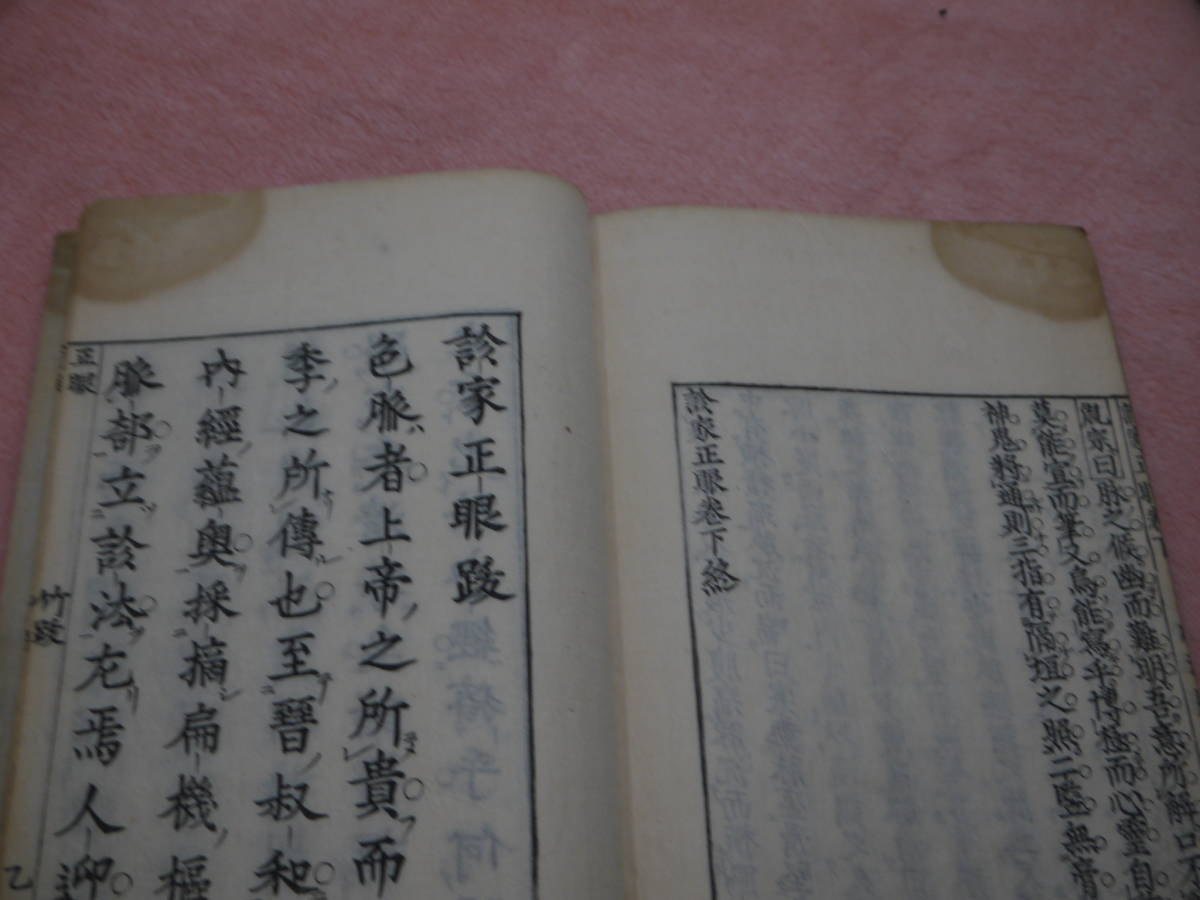 胤宗曰脉之候幽而難明吾意所解口不
莫能宣而筆又烏能寫乎博極而心靈自
神鬼將通則三指有隔垣之照二豎無膏
診家正眼卷下終
診家正眼跋
色脉者上帝之所貴而
季之所傳也至晉叔和
內經蘊奧採摘扁機樞
脉部立診法尨焉人迎
正眼
竹跋
乙